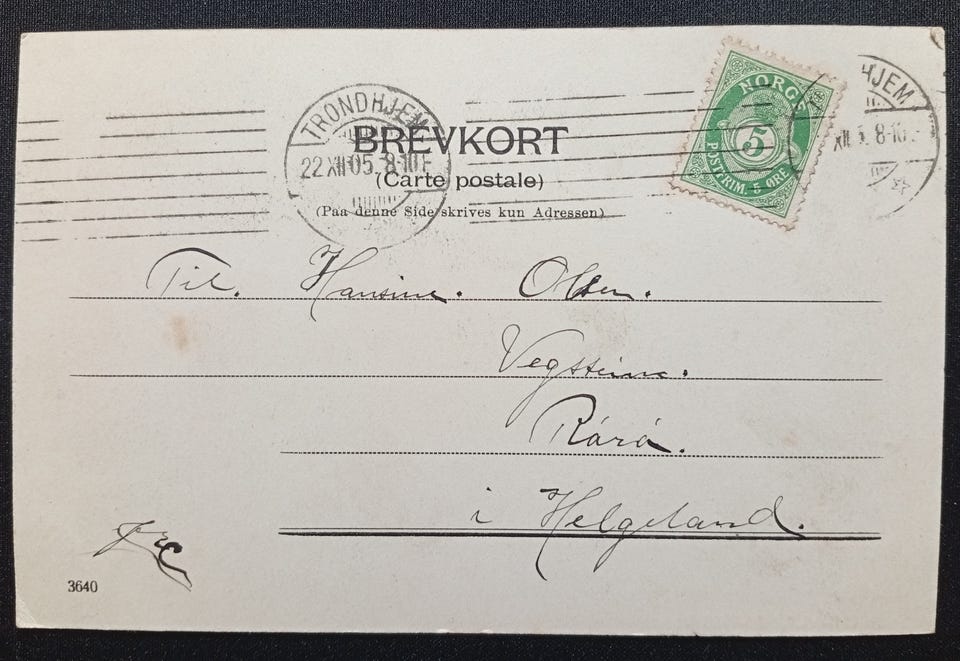 TRONDHJEM
22 XII 05. 8-10 E
BREVKORT
(Carte postale)
(Paa denne Side skrives kun Adressen)
NORGE
5
POSTFRIM. 5 ØRE
HJEM
XII 5. 8-10
Til. Hansine. Olsen.
Rárá.
i Helgeland.
3640